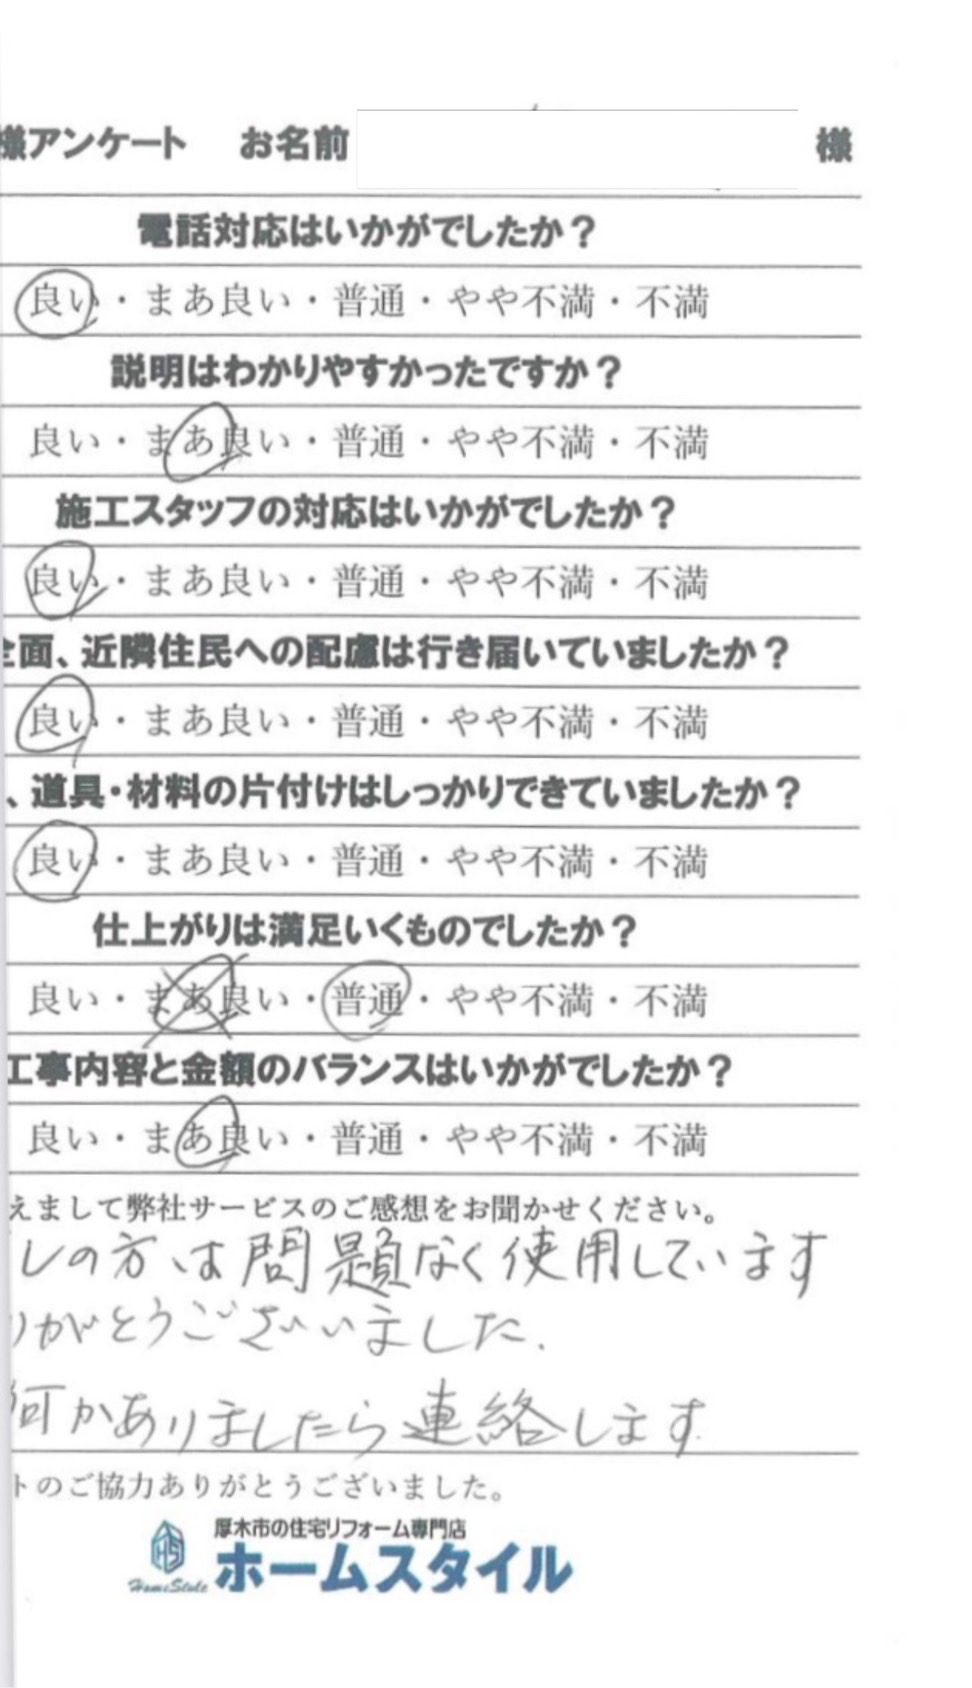 様アンケート お名前 様
電話対応はいかがでしたか？
良い・まあ良い・普通・やや不満・不満
説明はわかりやすかったですか？
良い・まあ良い・普通・やや不満・不満
施工スタッフの対応はいかがでしたか？
良い・まあ良い・普通・やや不満・不満
全面、近隣住民への配慮は行き届いていましたか？
良い・まあ良い・普通・やや不満・不満
、道具・材料の片付けはしっかりできていましたか？
良い・まあ良い・普通・やや不満・不満
仕上がりは満足いくものでしたか？
良い・まあ良い・普通・やや不満・不満
工事内容と金額のバランスはいかがでしたか？
良い・まあ良い・普通・やや不満・不満
えまして弊社サービスのご感想をお聞かせください。
レの方は問題なく使用しています
りがとうございました.
何かありましたら連絡します
トのご協力ありがとうございました。
厚木市の住宅リフォーム専門店
HS
HomeStyle
ホームスタイル